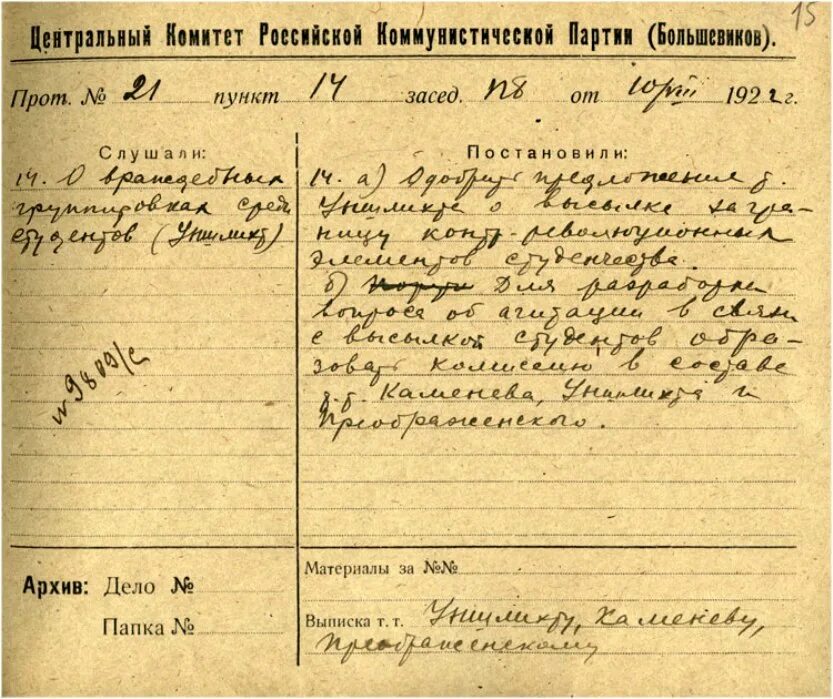 15
Центральный Комитет Российской Коммунистической Партии (Большевиков).
Прот. № 21 пункт 14 засед. ПБ от 10/VIII 1922 г.
Слушали:
14. О враждебных
группировках среди
студентов (Уншлихт)
№ 9809/с
Постановили:
14. а) Одобрить предложение т.
Уншлихта о высылке за гра-
ницу контр-революционных
элементов студенчества.
б) Для разработки
вопроса об агитации в связи
с высылкой студентов обра-
зовать комиссию в составе
т.т. Каменева, Уншлихта и
Преображенского.
Архив: Дело №
Папка №
Материалы за №№
Выписка т. т. Уншлихту, Каменеву,
Преображенскому